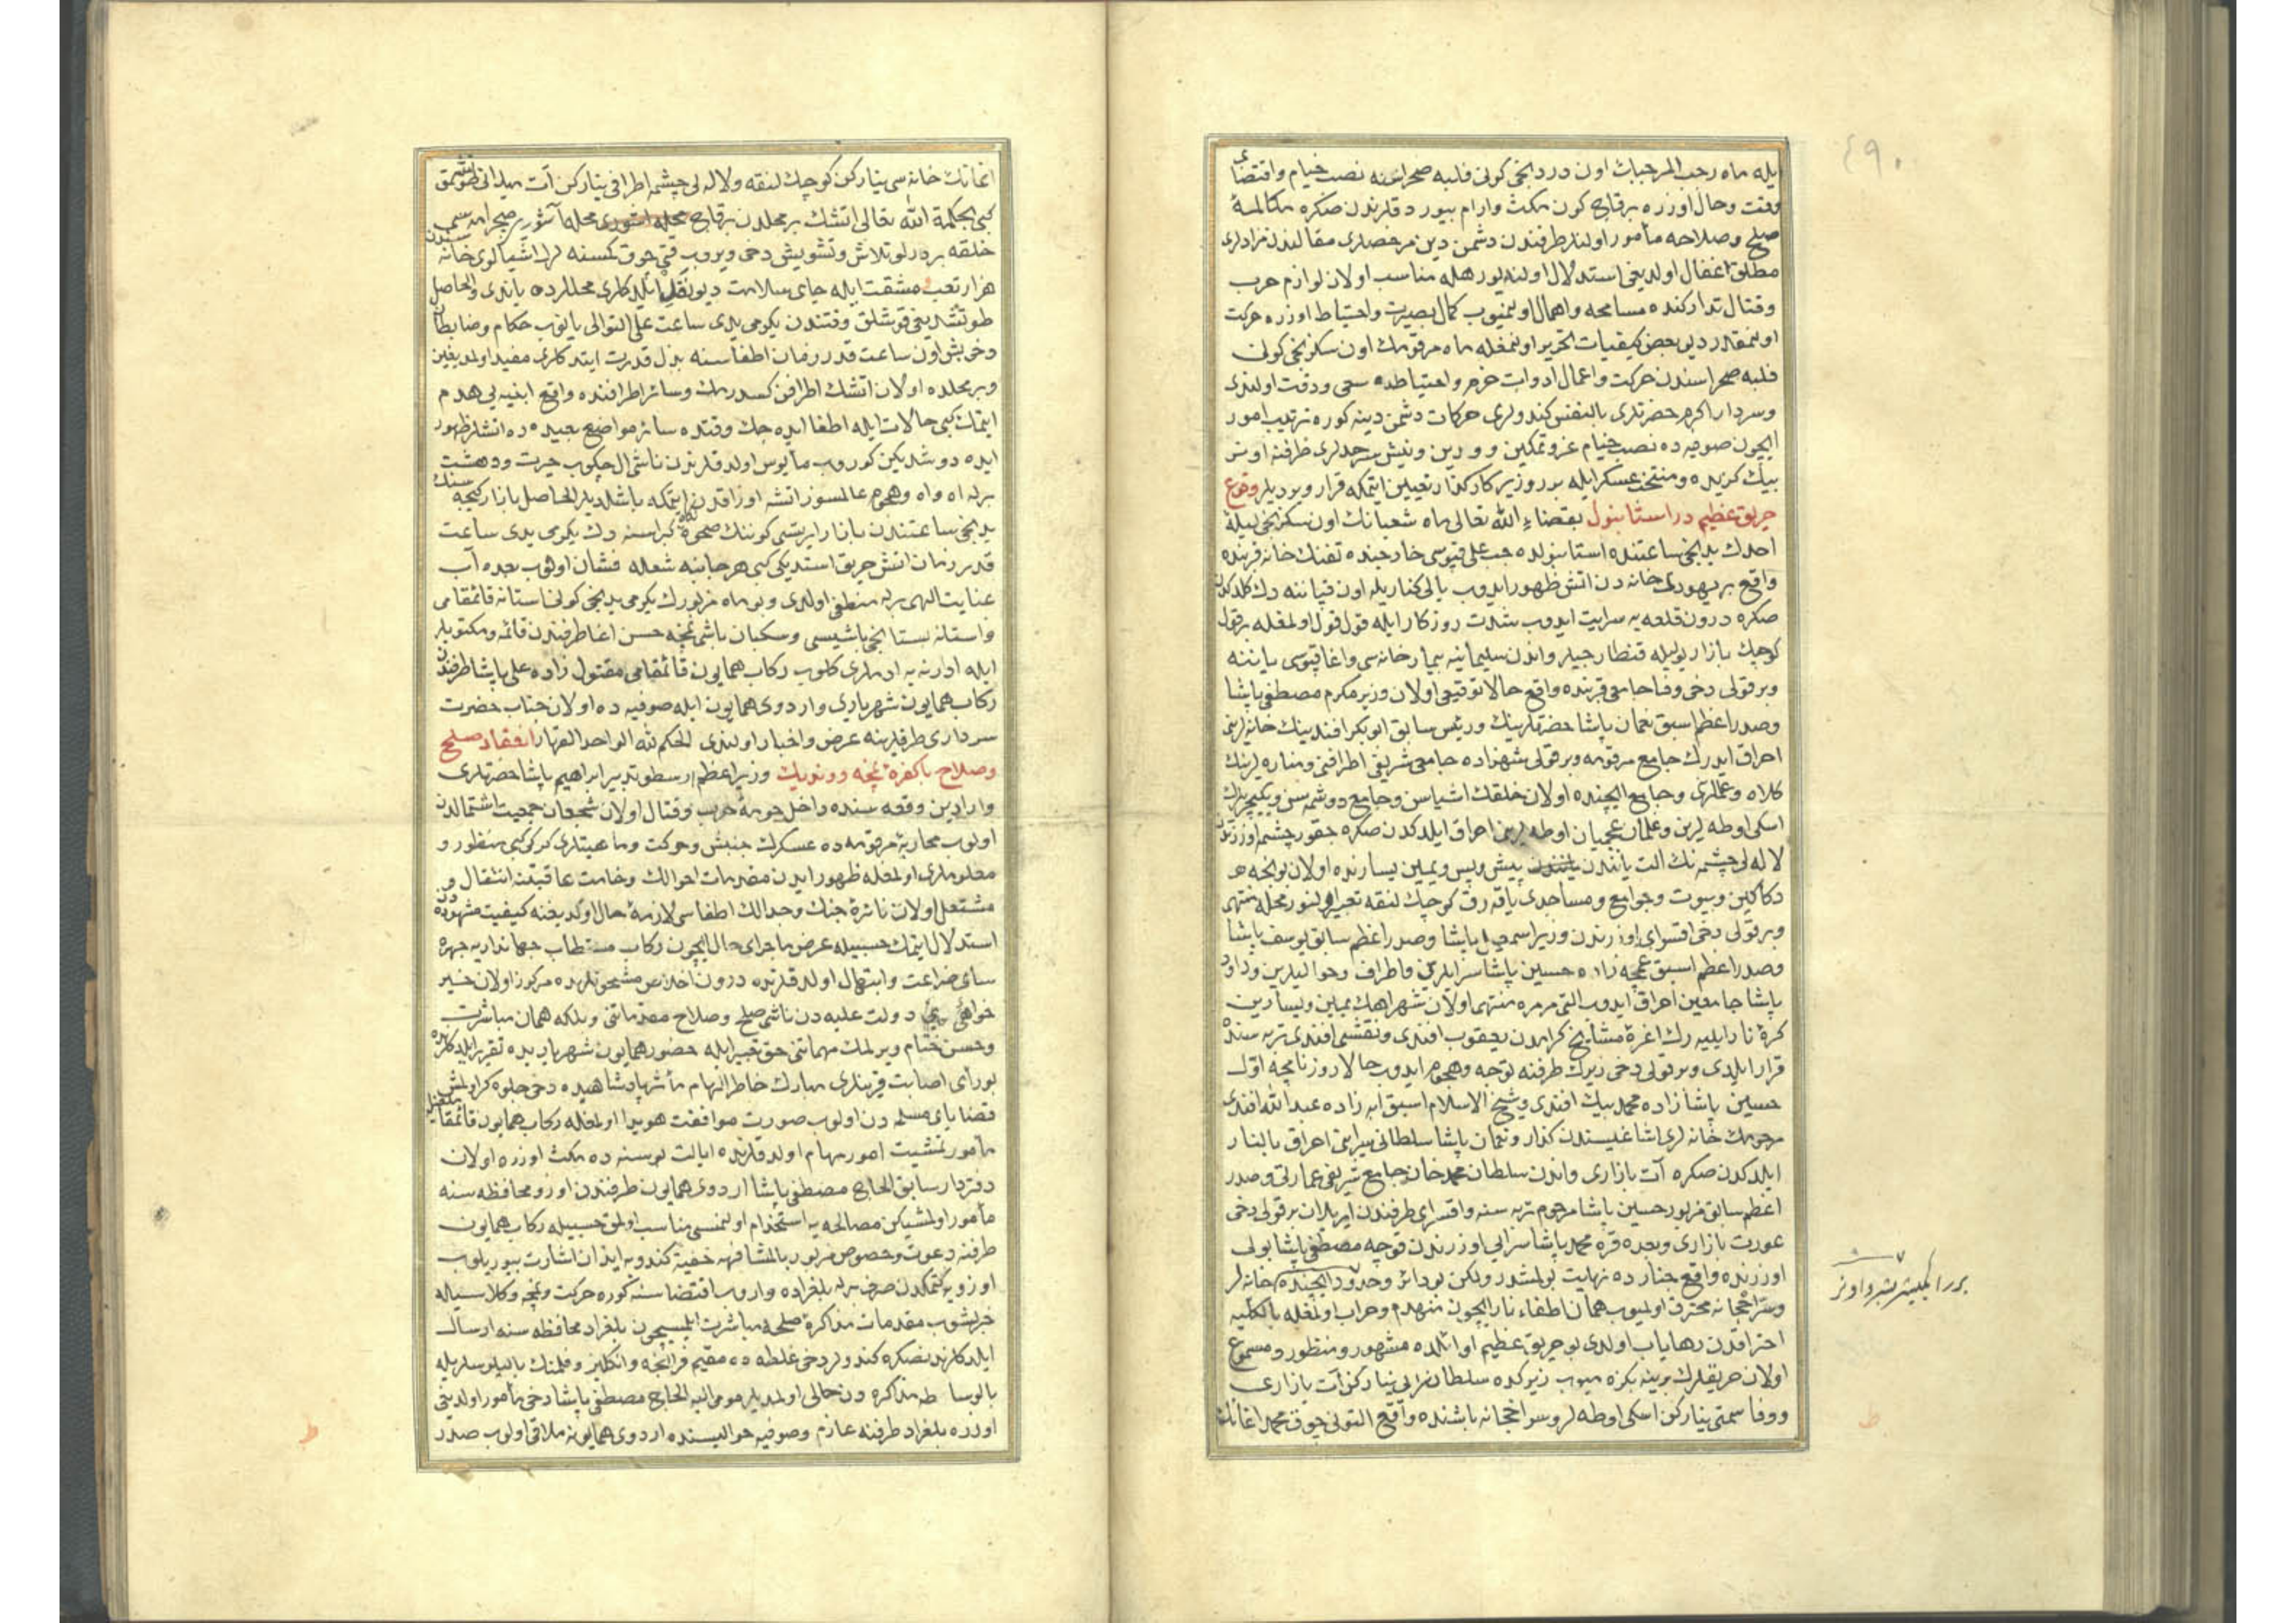 ٤٩٠
ايله ماه رجب المرجبك اون دردنجى كونى فلبه صحراسنه نصب خيام واقتضاى
وقت وحال اوزره برقاچ كون مكث وارام بيوردقلرندن صكره مكالمهٔ
صلح وصلاحه مأمور اولنلر طرفندن دشمن دين مرخصلرى مقالندن مرادلرى
مطلق اغفال اولديغى استدلال اولنديور هله مناسب اولان لوازم حرب
وقتال تداركنده مسامحه واهمال اولنميوب كمال بصيرت واحتياط اوزره حركت
اولنمقدر ديو بعض كيفيات تحرير اولنمغله ماه مرقومك اون سكزنجى كونى
فلبه صحراسندن حركت واعمال ادوات حزم واحتياطده سعى ودقت اولندى
وسردار اكرم حضرتلرى بالنفس كندولرى حركات دشمن دينه كوره ترتيب امور
ايچون صوفيه ده نصب خيام عز وتمكين و ودين ونيش سرحدلرى طرفنه اوتوز
بيك كزيده ومنتخب عسكر ايله بور وزير كاركذار تعيين ايتمكه قرار ويرديلر وقوع
حريق عظيم در استانبول بقضاء الله تعالى ماه شعبانك اون سكزنجى ليلهٔ
احدك يدنجى ساعتنده استانبولده جب على قپوسى خارجنده تفنك خانه قربنده
واقع بر يهودى خانه دن اتش ظهور ايدوب يالى كناريله اون قپاننه دك كلدكدن
صكره درون قلعه يه سرايت ايدوب شدت روزكار ايله قول قول اولمغله بر قول
كوچك بازار يوليله قنطارجيلر واندن سليمانيه بيمارخانه سى واغا قپوسى ياننه
وبر قولى دخى وفا جامعى قربنده واقع حالا توقيعى اولان وزير مكرم مصطفى پاشا
وصدراعظم اسبق نعمان پاشا حضرتلرينك ورئيس سابق ابوبكر افندينك خانه لرين
احراق ايدرك جامع مرقومه وبر قولى شهزاده جامع شريفى اطرافنى ومناره لرينك
كلاه وعلملرى وجامع ايچنده اولان خلقك اشياسن وجامع دوشمه سن ويكيچريلرك
اسكى اوطه لرين وغلمان عجميان اوطه لرين احراق ايلدكدن صكره چقور چشمه اوزرندن
لاله لى چشمه نك الت ياننده پيش وپس ويمين يسارنده اولان بونجه
دكاكين وبيوت وجوامع ومساجدى ياقه رق كوچك لنقه تعبير اولنور محله منتهى
وبر قولى دخى اقسراى اوزرندن وزير اسمعيل پاشا وصدراعظم سابق يوسف پاشا
وصدراعظم اسبق عمجه زاده حسين پاشا سرايلرين واطراف وحواليلرين وداود
پاشا جامعين احراق ايدوب التى مرمره منتهى اولان شهراهك يمين ويسارين
كرهٔ نار ايليه رك اغرهٔ مشايخ كرامدن يعقوب افندى ونقشى افندى تربه سنده
قرار ايلدى وبر قولى دخى زيرك طرفنه توجه وهجوم ايدوب حالا روزنامچه اول
حسين پاشا زاده محمد بيك افندى وشيخ الاسلام اسبق ابه زاده عبدالله افندى
مرحومك خانه لرى اشاغيسندن كذار ونعمان پاشا سلطانى سراين احراق بالنار
ايلدكدن صكره آت بازارى واندن سلطان محمد خان جامع شريفى عمارتى وصدر
اعظم سابق مزبور حسين پاشا مرحوم تربه سنه واقسراى طرفندن ايريلان بر قولى دخى
عورت بازارى وبعده قره محمد پاشا سرايى اوزرندن قوجه مصطفى پاشا يولى
اوزرنده واقع چنارده نهايت بولمشدر ولكن بو دائر وحدود ايچنده خانه لر
وسراجخانه محترق اولميوب همان اطفاء نار ايچون منهدم وخراب اولمغله بالكليه
احتراقدن رهاياب اولدى بو حريق عظيم اوائلده مشهور ومنظور ومسموع
اولان حريقلرك برينه بكزه ميوب زيركده سلطان سرايى ينار كن آت بازارى
ووفا سمتى ينار كن اسكى اوطه لر وسراجخانه باشنده واقع التونى چوق محمد اغانك
اغانك خانه سى ينار كن كوچك لنقه ولاله لى چشمه اطرافى ينار كن آت ميدانى طوتشمق
كبى بحكمة الله تعالى اتشك بر محلدن برقاچ محله
خلقه بر درلو تلاش وتشويش دخى ويروب قتى چوق كمسنه لر اشياسن كوى خانه سندن
هزار تعب ومشقت ايله جاى سلامت ديو نقل ايلدكلرى محللرده ياندى والحاصل
طوتشديغى قوشلق وقتندن يكرمى يدى ساعت على التوالى يانوب حكام وضابطان
دخى بش اون ساعت قدر زمان اطفاسنه بذل قدرت ايتدكلرى مفيد اولمديغين
وبر محلده اولان اتشك اطرافن كسدرمك وسائر اطرافنده واقع ابنيه يى هدم
ايتمك كبى حالات ايله اطفا ايده جك وقتده سائر مواضع بعيده ده اتشلر ظهور
ايده دوشديكن كوروب مأيوس اولدقلرندن ناشى ال چكوب حيرت ودهشت
برله اه واه وهجوم عالمسوز اتشه اوزاقدن ايتمكه باشلديلر الحاصل بازار كيجه سنك
يدنجى ساعتندن بازار ايرتسى كوننك ضحوهٔ كبراسنه دك يكرمى يدى ساعت
قدر زمان اتش حريق استديكى كبى هر جانبه شعله فشان اولوب بعده آب
عنايت الهى برله منطفى اولدى وبو ماه مزبورك يكرمى يدنجى كونى استانه قائمقامى
واستانه بستانجى باشيسى وسكبان باشى حسن اغا طرفندن قائمه ومكتوبلر
ايله ادرنه يه ادملرى كلوب ركاب همايون قائمقامى مقتول زاده على پاشا طرفندن
ركاب همايون شهريارى واردوى همايون ايله صوفيه ده اولان جناب حضرت
سردارى طرفلرينه عرض واخبار اولندى الحكم لله الواحد القهار انعقاد صلح
وصلاح با كفرهٔ نمچه و ونديك وزير اعظم ارسطو تدبير ابراهيم پاشا حضرتلرى
وارادين وقعه سنده داخل حومهٔ حرب وقتال اولان شجعان جمعيت اشتمالدن
اولوب محاربهٔ مرقومه ده عسكرك جنبش وحركت وماهيتلرى كركى كبى منظور و
معلوملرى اولمغله ظهور ايدن مقدمات احوالك وخامت عاقبتنه انتقال و
مشتعل اولان نائرهٔ جنك وجدالك اطفاسى لازمهٔ حال اولديغنه كيفيت مشهوددن
استدلال ايتمك حسبيله عرض ماجراى حال ايچون ركاب مستطاب جهانداريه چهره
ساى ضراعت وابتهال اولدقلرنده درون اخلاص مشحونلرنده مركوز اولان خير
خواهى دولت عليه دن ناشى صلح وصلاح مقدماتنى وبلكه همان مباشرت
وحسن ختام ويرلمك مهماتنى حق تعبير ايله حضور همايون شهرياريده تقرير ايلدكلرنده
بو رأى اصابت قرينلرى مبارك خاطر الهام مأثر پادشاهيده دخى جلوه كر اولمش
قضاياى مسلمه دن اولوب صورت موافقت هويدا اولمغله ركاب همايون قائمقاملغيله
مأمور تمشيت امور مهام اولدقلرنده ايالت بوسنه ده مكث اوزره اولان
دفتردار سابق الحاج مصطفى پاشا اردوى همايون طرفندن اوزو محافظه سنه
مأمور اولمشيكن مصالحه يه استخدام اولنمسى مناسب اولمق حسبيله ركاب همايون
طرفنه دعوت وخصوص مزبور بالمشافهه خفية كندويه ايذان اشارت بيوريلوب
اوزويه كتمكدن صرف برله بلغراده واروب اقتضاسنه كوره حركت ونمچه وكلاسيله
خبرلشوب مقدمات مذاكرهٔ صلحه مباشرت ايلسيچون بلغراد محافظه سنه ارسال
ايلدكلرندنصكره كندولر دخى غلطه ده مقيم فرانچه وانكليز وفلمنك بالیوسلريله
بالوساطه مذاكره دن خالى اولمديلر مومى اليه الحاج مصطفى پاشا دخى مأمور اولديغى
اوزره بلغراد طرفنه عازم وصوفيه حواليسنده اردوى همايونه ملاقى اولوب صدر